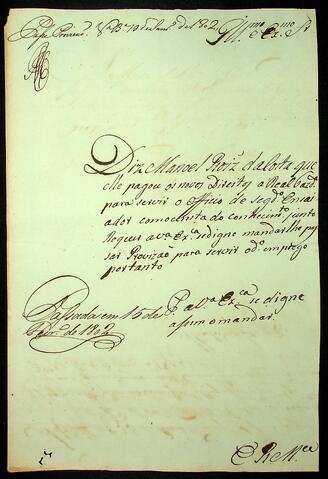 Passe Provizão. V.ª B.ª 10 de Janr.º de 1802. Ill.mo e Ex.mo Sr
Diz Manoel Roiz da Costa que
elle pagou os novos Direitos a Real Fazd.ª
para servir o Officio de segd.º Ensai
ador como consta do conhecim.to junto
Requer a V.ª Ex.ª se digne mandarlhe pas
sar Provizão para servir o d.º emprego
portanto
P. a V.ª Ex.cª se digne
assim o mandar.
Passada em 15 de
Febr.º de 1802
E R M.ce